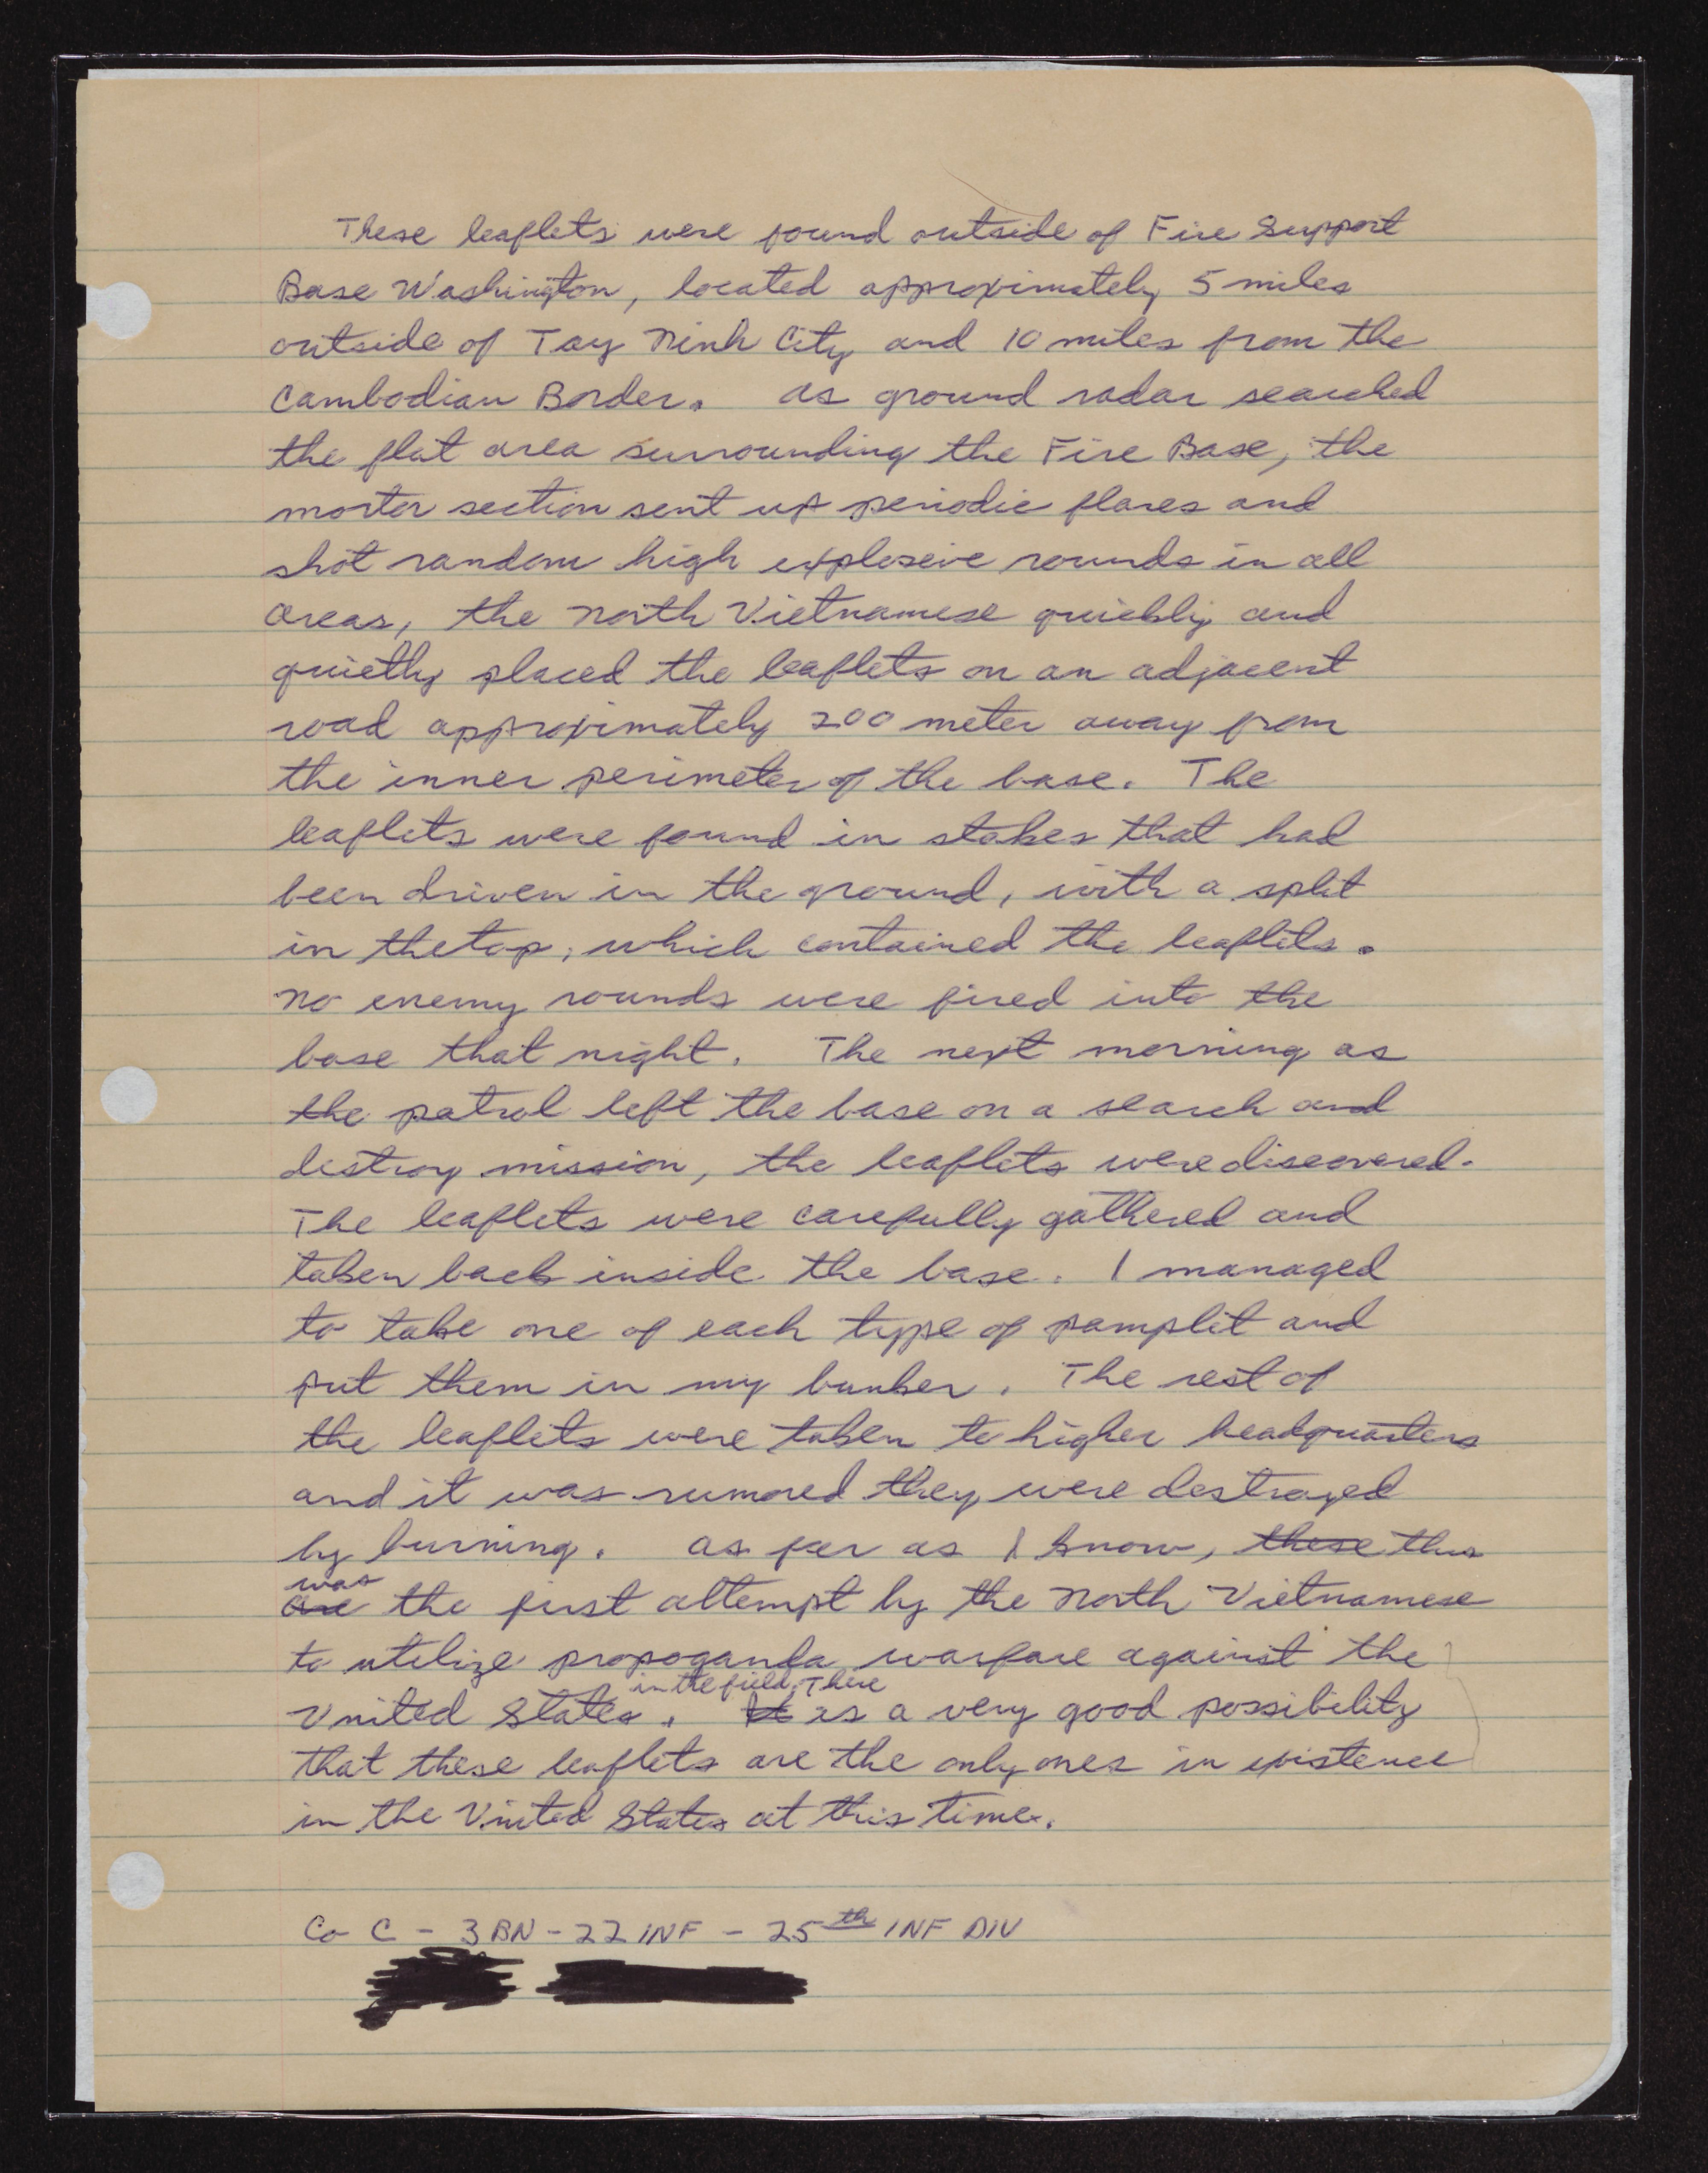 These leaflets were found outside of Fire Support
Base Washington, located approximately 5 miles
outside of Tay Ninh City and 10 miles from the
Cambodian Border. As ground radar searched
the flat area surrounding the Fire Base, the
morter section sent up periodic flares and
shot random high explosive rounds in all
areas, the North Vietnamese quickly and
quietly placed the leaflets on an adjacent
road approximately 200 meter away from
the inner perimeter of the base. The
leaflets were found in stakes that had
been driven in the ground, with a split
in the top, which contained the leaflets.
No enemy rounds were fired into the
base that night. The next morning as
the patrol left the base on a search and
destroy mission, the leaflets were discovered.
The leaflets were carefully gathered and
taken back inside the base. I managed
to take one of each type of pamplit and
put them in my bunker. The rest of
the leaflets were taken to higher headquarters
and it was rumored they were destroyed
by burning. As far as I know, these this
was
are the first attempt by the North Vietnamese
to utilize propoganda warfare against the
in the field. There
United States. It is a very good possibility
that these leaflets are the only ones in existence
in the United States at this time.
Co C - 3 BN - 22 INF - 25th INF DIV